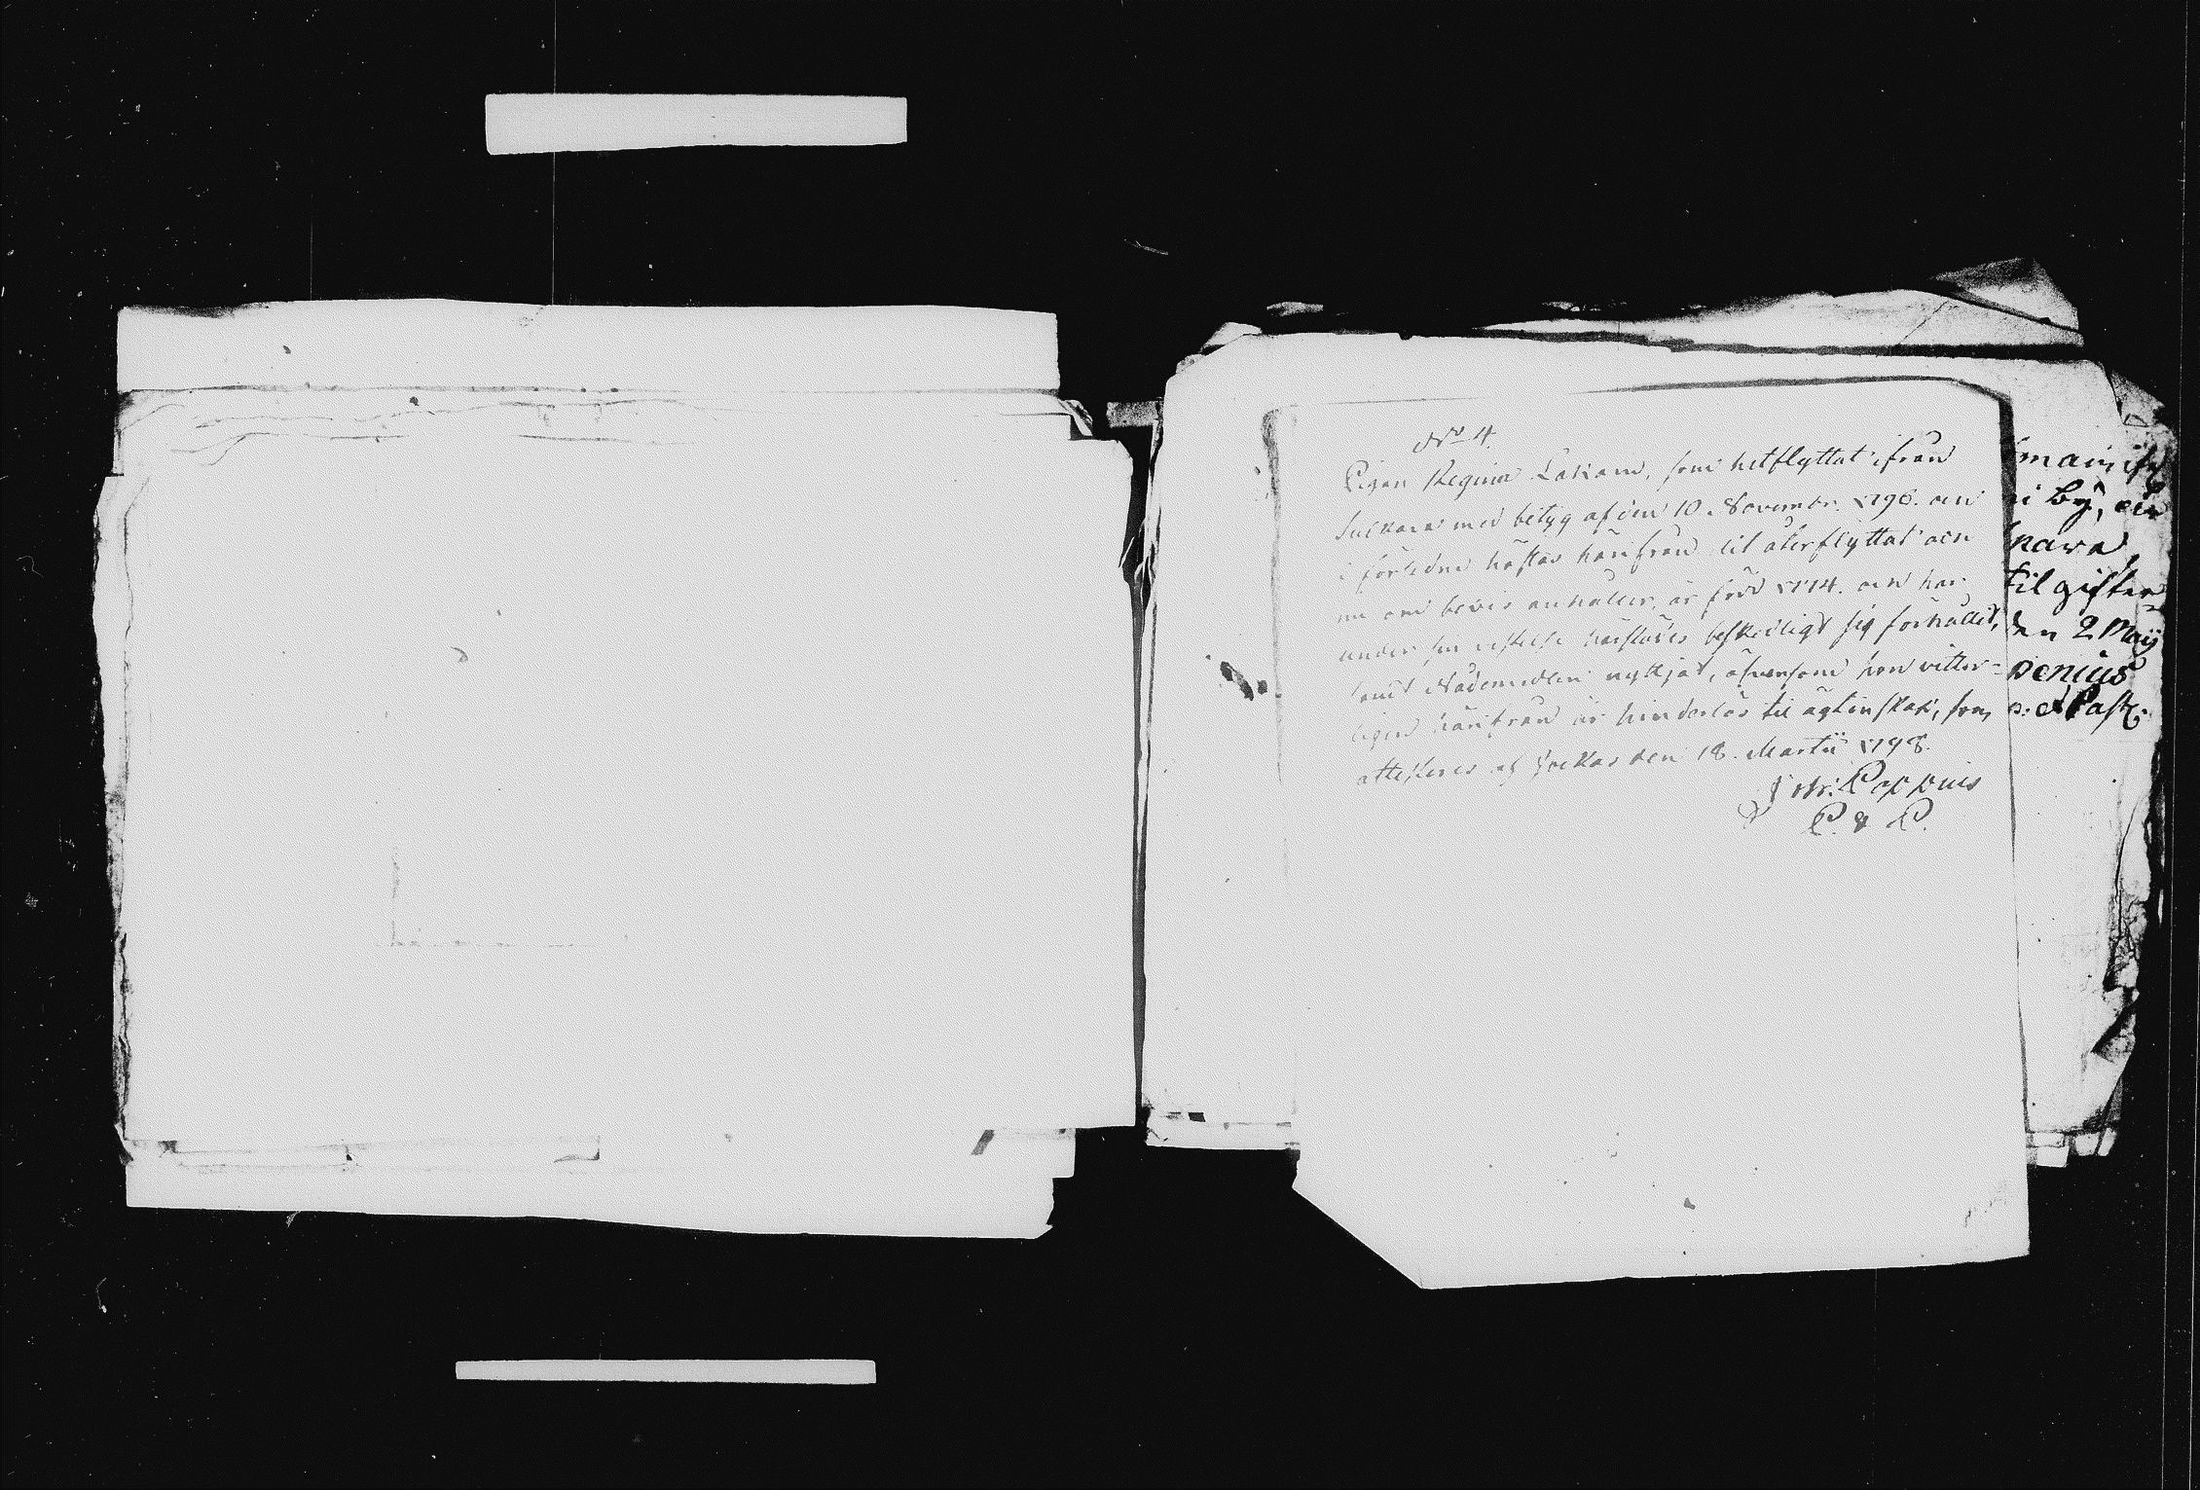 No 4.
Pigan Regina Lakann, som hitflyttat ifrån
Sulkava med betyg af den 10 Novembr. 1796. och
i förledne höstas härifrån dit återflyttat och
nu om bevis anhåller, är född 1774. och har
under sin vistelse härstädes beskedligt sig förhållit,
samt Nådemedlen nyttjat, äfvensom hon vitter-
ligen härifrån är hinderlös til ägtenskap, som
attesteres af Jockas den 18. Martii 1798.
Joh: Poppius
P. & P.
by, och
til gifter
den 2 Maij
penius
Past: